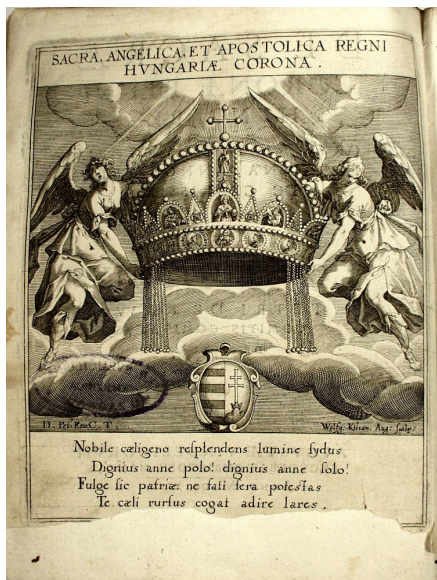 SACRA, ANGELICA, ET APOSTOLICA REGNI
HVNGARIÆ CORONA.
D. Pet. Rev. C. T.
Wolfg: Kilian, Aug: sculp.
Nobile cæligeno reſplendens lumine ſydus
Dignius anne polo! dignius anne ſolo!
Fulge ſic patriæ: ne fati ſera poteſtas
Te cæli rurſus cogat adire lares.